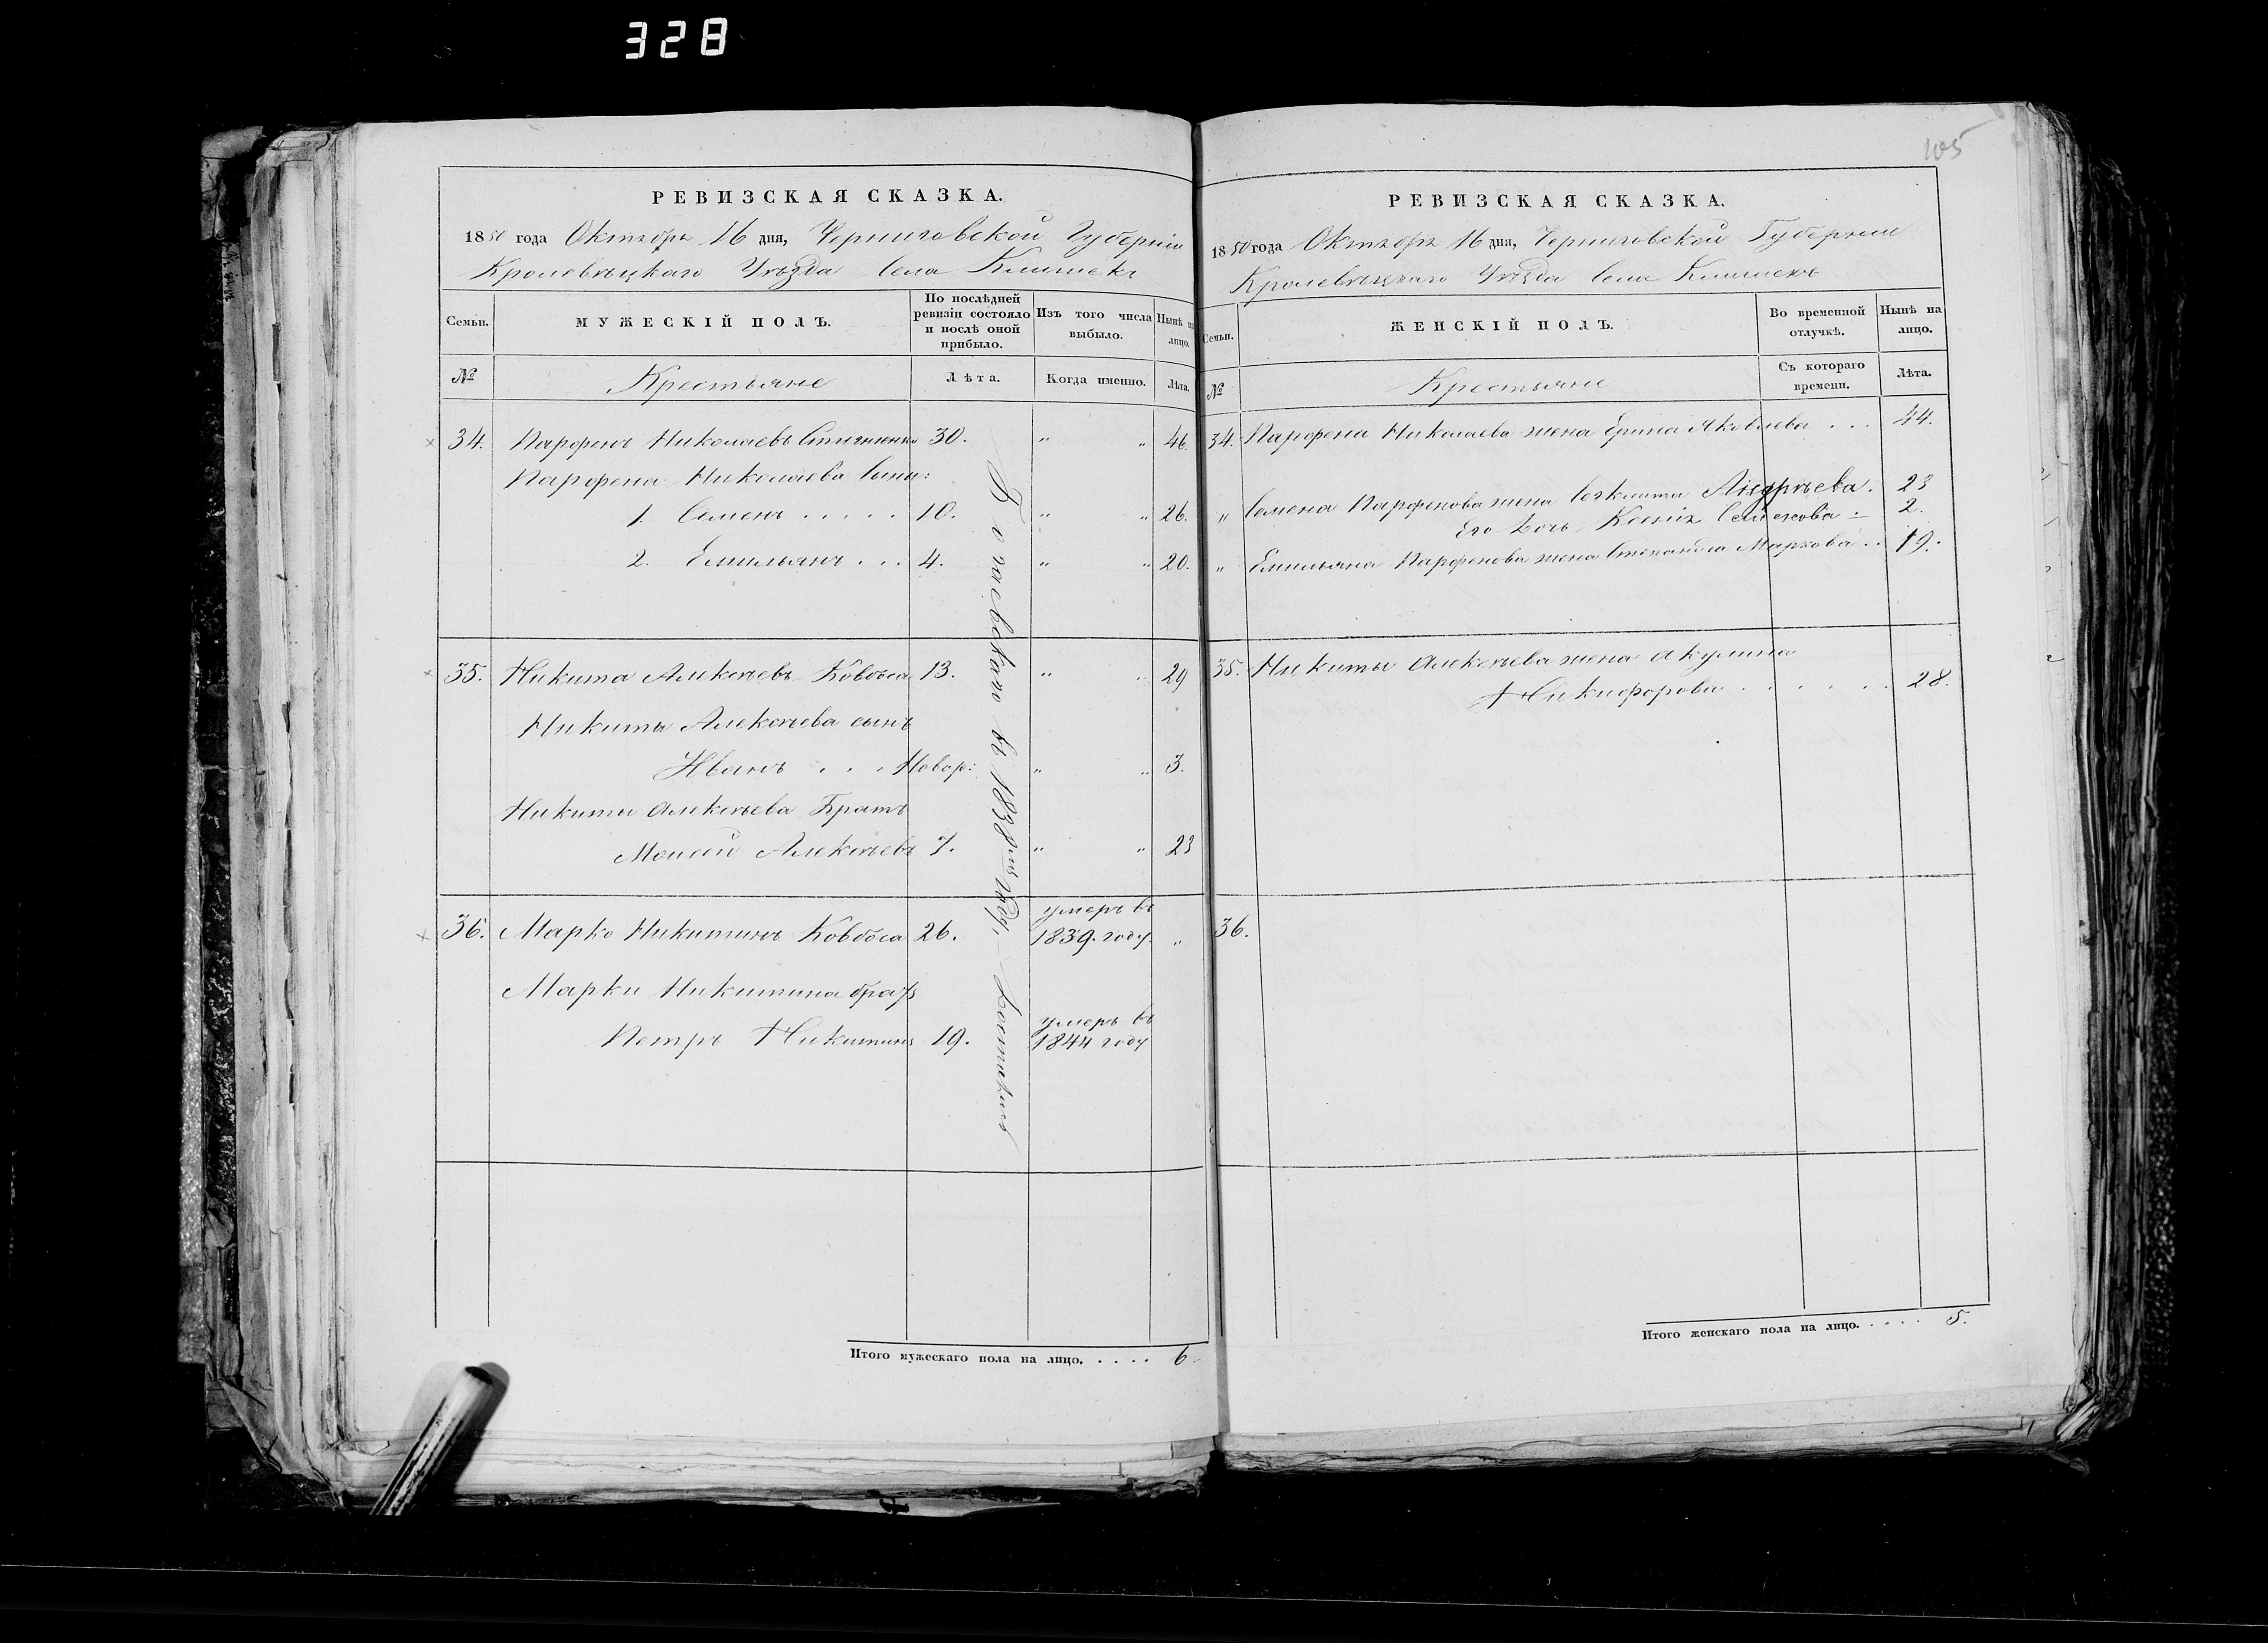 328
105
РЕВИЗСКАЯ СКАЗКА.
1850 года Октября 16 дня, Черниговской Губерніи
Кролевецкаго Уѣзда Села Клишекъ
Семьи.
МУЖЕСКІЙ ПОЛЪ.
По послѣдней ревизіи состояло и послѣ оной прибыло.
Изъ того числа выбыло.
Нынѣ на лицо.
№
Крестьяне
Лѣта.
Когда именно.
Лѣта.
34. Парфенъ Николаевъ 30. „ „ 46.
Парфена Николаева сыны:
1. Семенъ . . . . . 10. „ „ 26.
2. Емильянъ . . . 4. „ „ 20.
35. Никита Алексѣевъ Ковбаса 13. „ „ 29
Никиты Алексѣева сынъ
Иванъ . . . Новор: „ „ 3.
Никиты Алексѣева Братъ
Моисей Алексѣевъ 7. „ „ 23
36. Марко Никитинъ Ковбаса 26. умеръ въ 1839. году. „
Марки Никитина братъ
Петръ Никитинъ 19. умеръ въ 1844 году
въ 1838 году,
Итого мужескаго пола на лицо. . . . . 6.
РЕВИЗСКАЯ СКАЗКА.
1850 года Октября 16 дня, Черниговской Губерніи
Кролевецкаго Уѣзда Села Клишекъ
Семьи.
ЖЕНСКІЙ ПОЛЪ.
Во временной отлучкѣ.
Нынѣ на лицо.
№
Крестьяне
Съ котораго времени.
Лѣта.
34. Парфена Николаева жена Ирина Яковлева . . . 44.
„ Семена Парфенова жена Андрѣева. 23
Его Дочь Ксенія Семенова 2.
„ Емильяна Парфенова жена Степанида Маркова . . 19.
35. Никиты Алексѣева жена Акулина
Никифорова . . . . . . 28.
36.
Итого женскаго пола на лицо. . . . . 5.